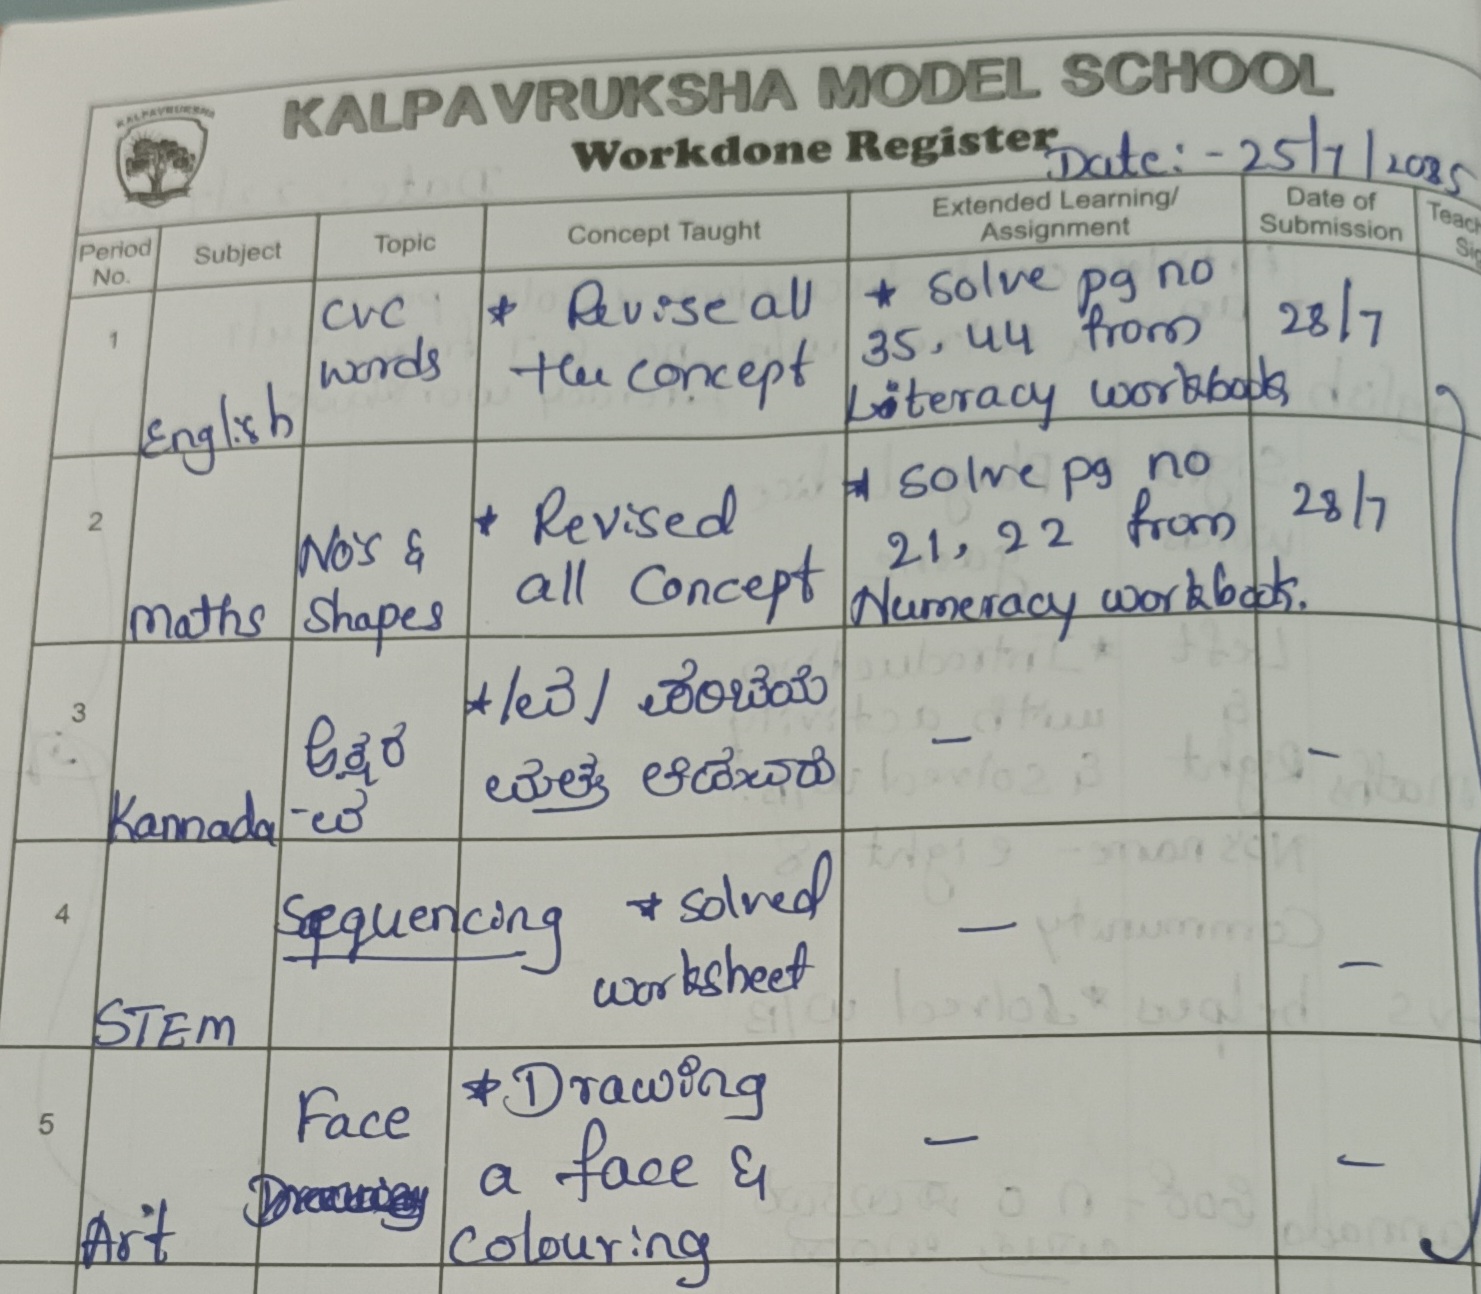 KALPAVRUKSHA
KALPAVRUKSHA MODEL SCHOOL
Workdone Register
Date:- 25/7/2025
Period No.
Subject
Topic
Concept Taught
Extended Learning/
Assignment
Date of
Submission
1
English
CVC
words
* Revise all
the concept
* solve pg no
35, 44 from
Literacy workbook
28/7
2
Maths
No's &
Shapes
* Revised
all Concept
* solve pg no
21, 22 from
Numeracy workbook.
28/7
3
Kannada
ಅಕ್ಷರ
* ಪರಿಚಯ
ಮತ್ತು
-
-
4
STEM
Sequencing
* solved
worksheet
-
-
5
Art
Face
Drawing
* Drawing
a face &
colouring
-
-